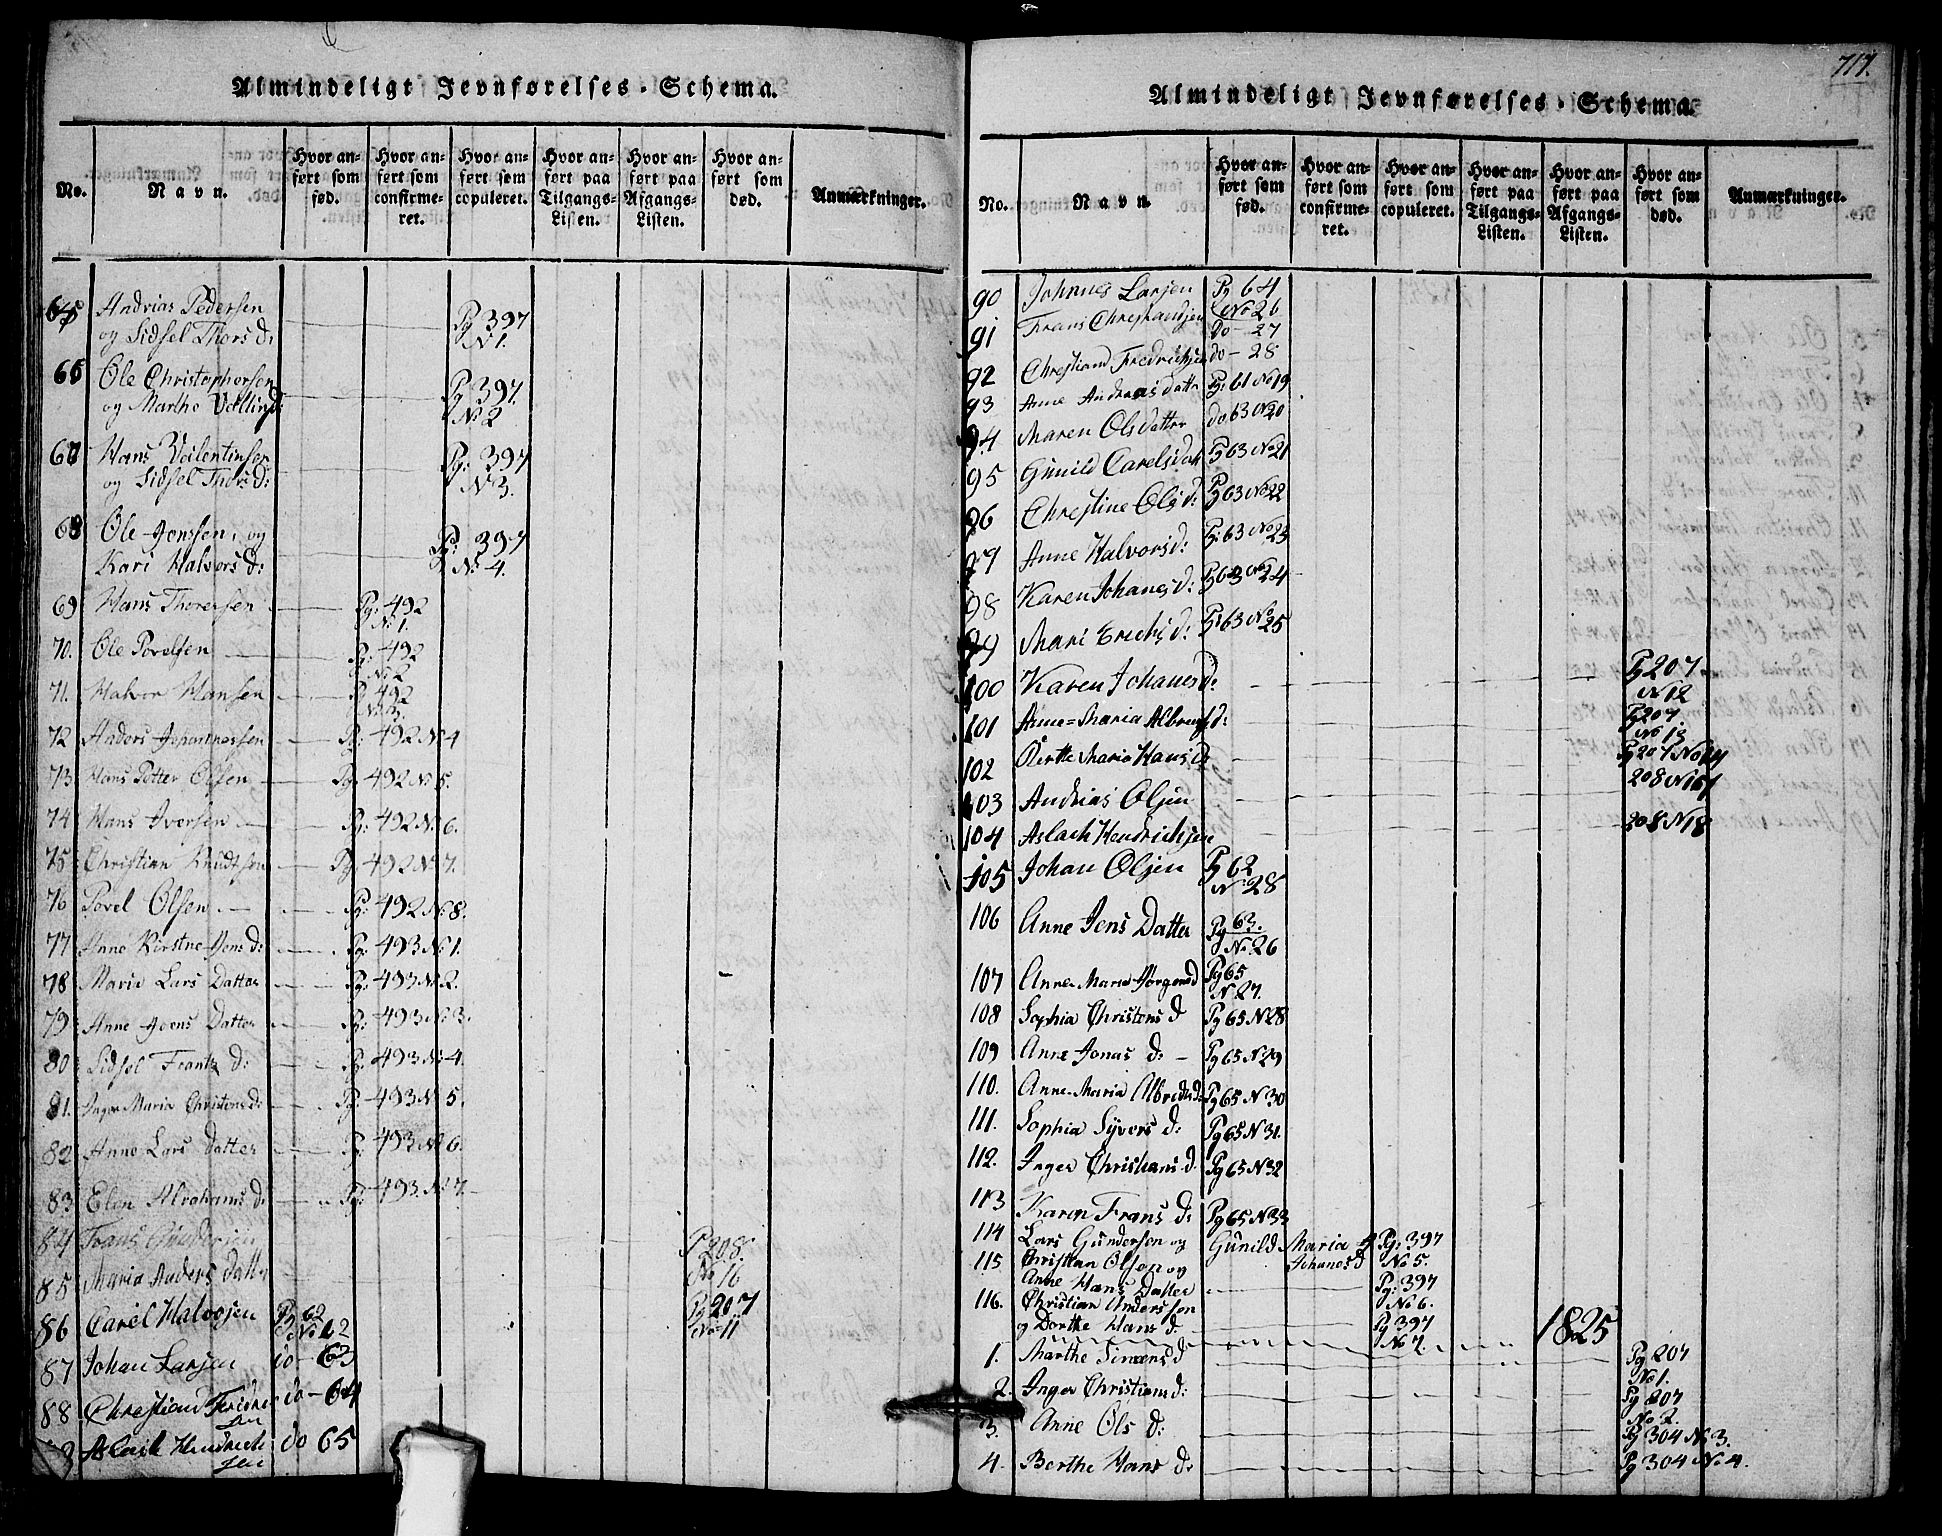 Almindeligt Jevnførelses-Schema.
No.
Navn.
Hvor an-
ført som
fød.
Hvor an-
ført som
confirme-
ret.
Hvor an-
ført som
copuleret.
Hvor an-
ført paa
Tilgangs-
Listen.
Hvor an-
ført paa
Afgangs-
Listen.
Hvor an-
ført som
død.
Anmærkninger.
65 Andrias Pedersen
og Sidsel Thors d: Pg 397
No 1.
66 Ole Christophersen
og Marthe Vællind: Pg 397
No 2
67 Hans Veilentinsen
og Sidsel Thors d: Pg: 397
No 3.
68 Ole Jonssen, og
Kari Halvors d: Pg: 397
No 4.
69 Hans Thoresen Pg: 492
No 1.
70. Ole Povelsen Pg: 492
No 2
71. Halvor Hansen Pg 492
No 3.
72 Anders Johannessen Pg: 492 No 4
73 Hans Petter Olsen Pg: 492 No 5.
74 Hans Iversen Pg: 492 No 6.
75 Christian Knudtsen Pg 492 No 7.
76 Povel Olsen Pg: 492 No 8.
77 Anne Kirstne Jens d: Pg: 493 No 1.
78 Maria Lars Datter Pg: 493 No 2.
79 Anne Joens Datter Pg: 493 No 3.
80 Sidsel Frantz d: Pg: 493 No 4.
81. Inger Maria Christens d: Pg: 493 No 5.
82 Anne Lars Datter Pg: 493 No 6.
83 Elen Abrahams d: Pg: 493 No 7.
84 Frans Gundersen P 208.
No 16
85 Maria Anders Datter
Pg 207
No 11
86 Carel Halvosen Pg 62
No 62
87 Johan Larsen do - 63
88 Christian Fridric
sen do - 64
Aslak Hendrich
sen do 65
717.
Almindeligt Jevnførelses-Schema.
No.
Navn.
Hvor an-
ført som
fød.
Hvor an-
ført som
confirme-
ret.
Hvor an-
ført som
copuleret.
Hvor an-
ført paa
Tilgangs-
Listen.
Hvor an-
ført paa
Afgangs-
Listen.
Hvor an-
ført som
død.
Anmærkninger.
90 Johnnes Larsen Pg 64
No 26
91 Frans Christiansen do - 27
92 Christian Fredrichsen do - 28
93 Anne Andreas datter Pg: 61 No 19
94 Maren Olsdatter do 63 No 20
95 Gunild Carelsdatt Pg 63 No 21
96 Christine Ols d: Pg 63 No 22
97 Anne Halvors d: Pg: 63 No 23
98 Karen Johanes d: Pg 63 No 24
99 Mari Erichs d: Pg: 63 No 25
100 Karen Johanes d: Pg 207
No 12
101 Anne=Maria Albrets d: Pg 207.
No 13
102 Birtte Maria Hans d Pg 207 No 14
103 Andrias Olsen 208 No 17
104 Aslach Hendrichsen 208 No 18
105 Johan Olsen Pg 62
No 28
106 Anne Jens Datter Pg 63.
No 26
107 Anne Maria Jörgens d Pg 65
No 27.
108 Sophia Christens d Pg 65 No 28
109 Anne Jonas d: Pg 65 No 29
110. Anne Maria Albrets d: Pg 65 No 30
111. Sophia Syvers d: Pg 65 No 31.
112. Inger Christians d. Pg 65 No 32
113 Karen Frans d: Pg 65 No 33
114 Lars Gundersen og Gunild Maria Johanes d Pg: 397
No 5.
115 Christian Olsen og
Anne Hans Datter Pg: 397
No 6.
116. Christian Anderssen
og Dorthe Hans d. Pg 397
No 7.
1825
1. Marthe Simens d Pg 207
No 1.
2. Inger Christians d: Pg 207
No 2.
3. Anne Ols d: Pg 304 No 3.
4. Berthe Hans d: Pg 304 No 4.